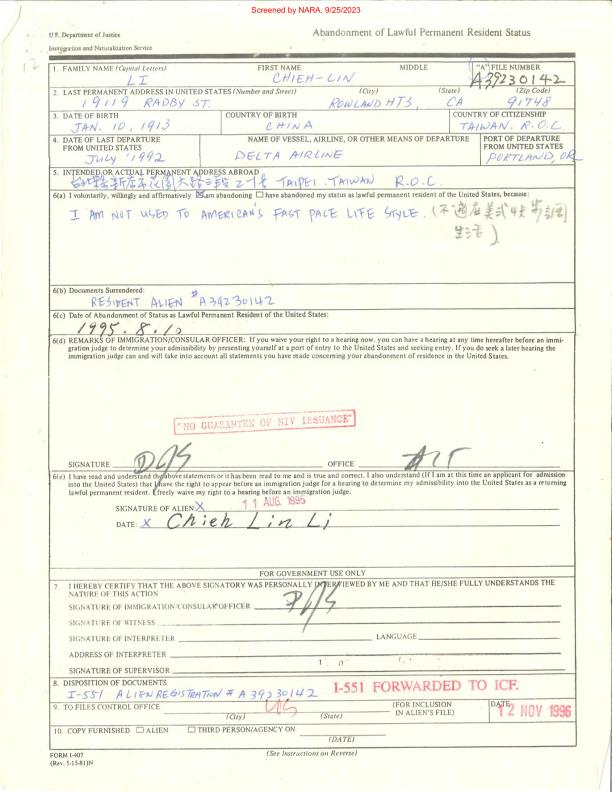 Screened by NARA, 9/25/2023
U.S. Department of Justice
Immigration and Naturalization Service
Abandonment of Lawful Permanent Resident Status
12
1. FAMILY NAME (Capital Letters) FIRST NAME MIDDLE "A" FILE NUMBER
LI CHIEH-LIN A39230142
2. LAST PERMANENT ADDRESS IN UNITED STATES (Number and Street) (City) (State) (Zip Code)
19119 RADBY ST. ROWLAND HTS, CA 91748
3. DATE OF BIRTH COUNTRY OF BIRTH COUNTRY OF CITIZENSHIP
JAN. 10, 1913 CHINA TAIWAN. R.O.C.
4. DATE OF LAST DEPARTURE FROM UNITED STATES NAME OF VESSEL, AIRLINE, OR OTHER MEANS OF DEPARTURE PORT OF DEPARTURE FROM UNITED STATES
July '1992 DELTA AIRLINE PORTLAND, OR
5. INTENDED OR ACTUAL PERMANENT ADDRESS ABROAD
台北縣新店市花園大路三段 TAIPEI. TAIWAN R.O.C.
6(a) I voluntarily, willingly and affirmatively ☒ am abandoning ☐ have abandoned my status as lawful permanent resident of the United States, because:
I AM NOT USED TO AMERICAN'S FAST PALE LIFE STYLE. (不適應美式快步調
生活)
6(b) Documents Surrendered:
RESIDENT ALIEN # A39230142
6(c) Date of Abandonment of Status as Lawful Permanent Resident of the United States:
1995. 8. 10
6(d) REMARKS OF IMMIGRATION/CONSULAR OFFICER: If you waive your right to a hearing now, you can have a hearing at any time hereafter before an immi-
gration judge to determine your admissibility by presenting yourself at a port of entry to the United States and seeking entry. If you do seek a later hearing the
immigration judge can and will take into account all statements you have made concerning your abandonment of residence in the United States.
"NO GUARANTEE OF NIV ISSUANCE"
SIGNATURE OFFICE AIT
6(e) I have read and understand the above statements or it has been read to me and is true and correct. I also understand (If I am at this time an applicant for admission
into the United States) that I have the right to appear before an immigration judge for a hearing to determine my admissibility into the United States as a returning
lawful permanent resident. I freely waive my right to a hearing before an immigration judge.
SIGNATURE OF ALIEN X 11 AUG. 1995
DATE: X Chieh Lin Li
FOR GOVERNMENT USE ONLY
7. I HEREBY CERTIFY THAT THE ABOVE SIGNATORY WAS PERSONALLY INTERVIEWED BY ME AND THAT HE/SHE FULLY UNDERSTANDS THE
NATURE OF THIS ACTION
SIGNATURE OF IMMIGRATION/CONSULAR OFFICER
SIGNATURE OF WITNESS
SIGNATURE OF INTERPRETER LANGUAGE
ADDRESS OF INTERPRETER
SIGNATURE OF SUPERVISOR
8. DISPOSITION OF DOCUMENTS
I-551 ALIEN REGISTRATION # A 39230142 I-551 FORWARDED TO ICF.
9. TO FILES CONTROL OFFICE (FOR INCLUSION IN ALIEN'S FILE) DATE
(City) (State) 12 NOV 1996
10. COPY FURNISHED ☐ ALIEN ☐ THIRD PERSON/AGENCY ON
(DATE)
FORM I-407
(Rev. 5-15-81)N
(See Instructions on Reverse)